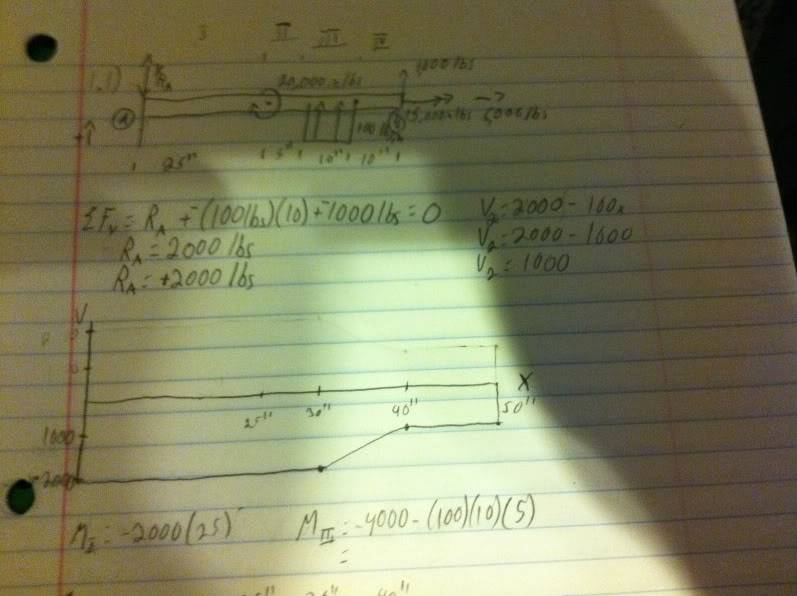 I II III IV
1.1) R_A 20,000 in lbs 1000 lbs
A 100 lbs 15,000 in lbs
25" 5" 10" 10"
ΣF_V = R_A + -(100 lbs)(10) + -1000 lbs = 0 V_2 = 2000 - 100x
R_A = 2000 lbs V_2 = 2000 - 1000
R_A = +2000 lbs V_2 = 1000
V
0
25" 30" 40" 50" X
1000
-2000
M_I = -2000(25) M_III = -4000 - (100)(10)(5)
=
40"